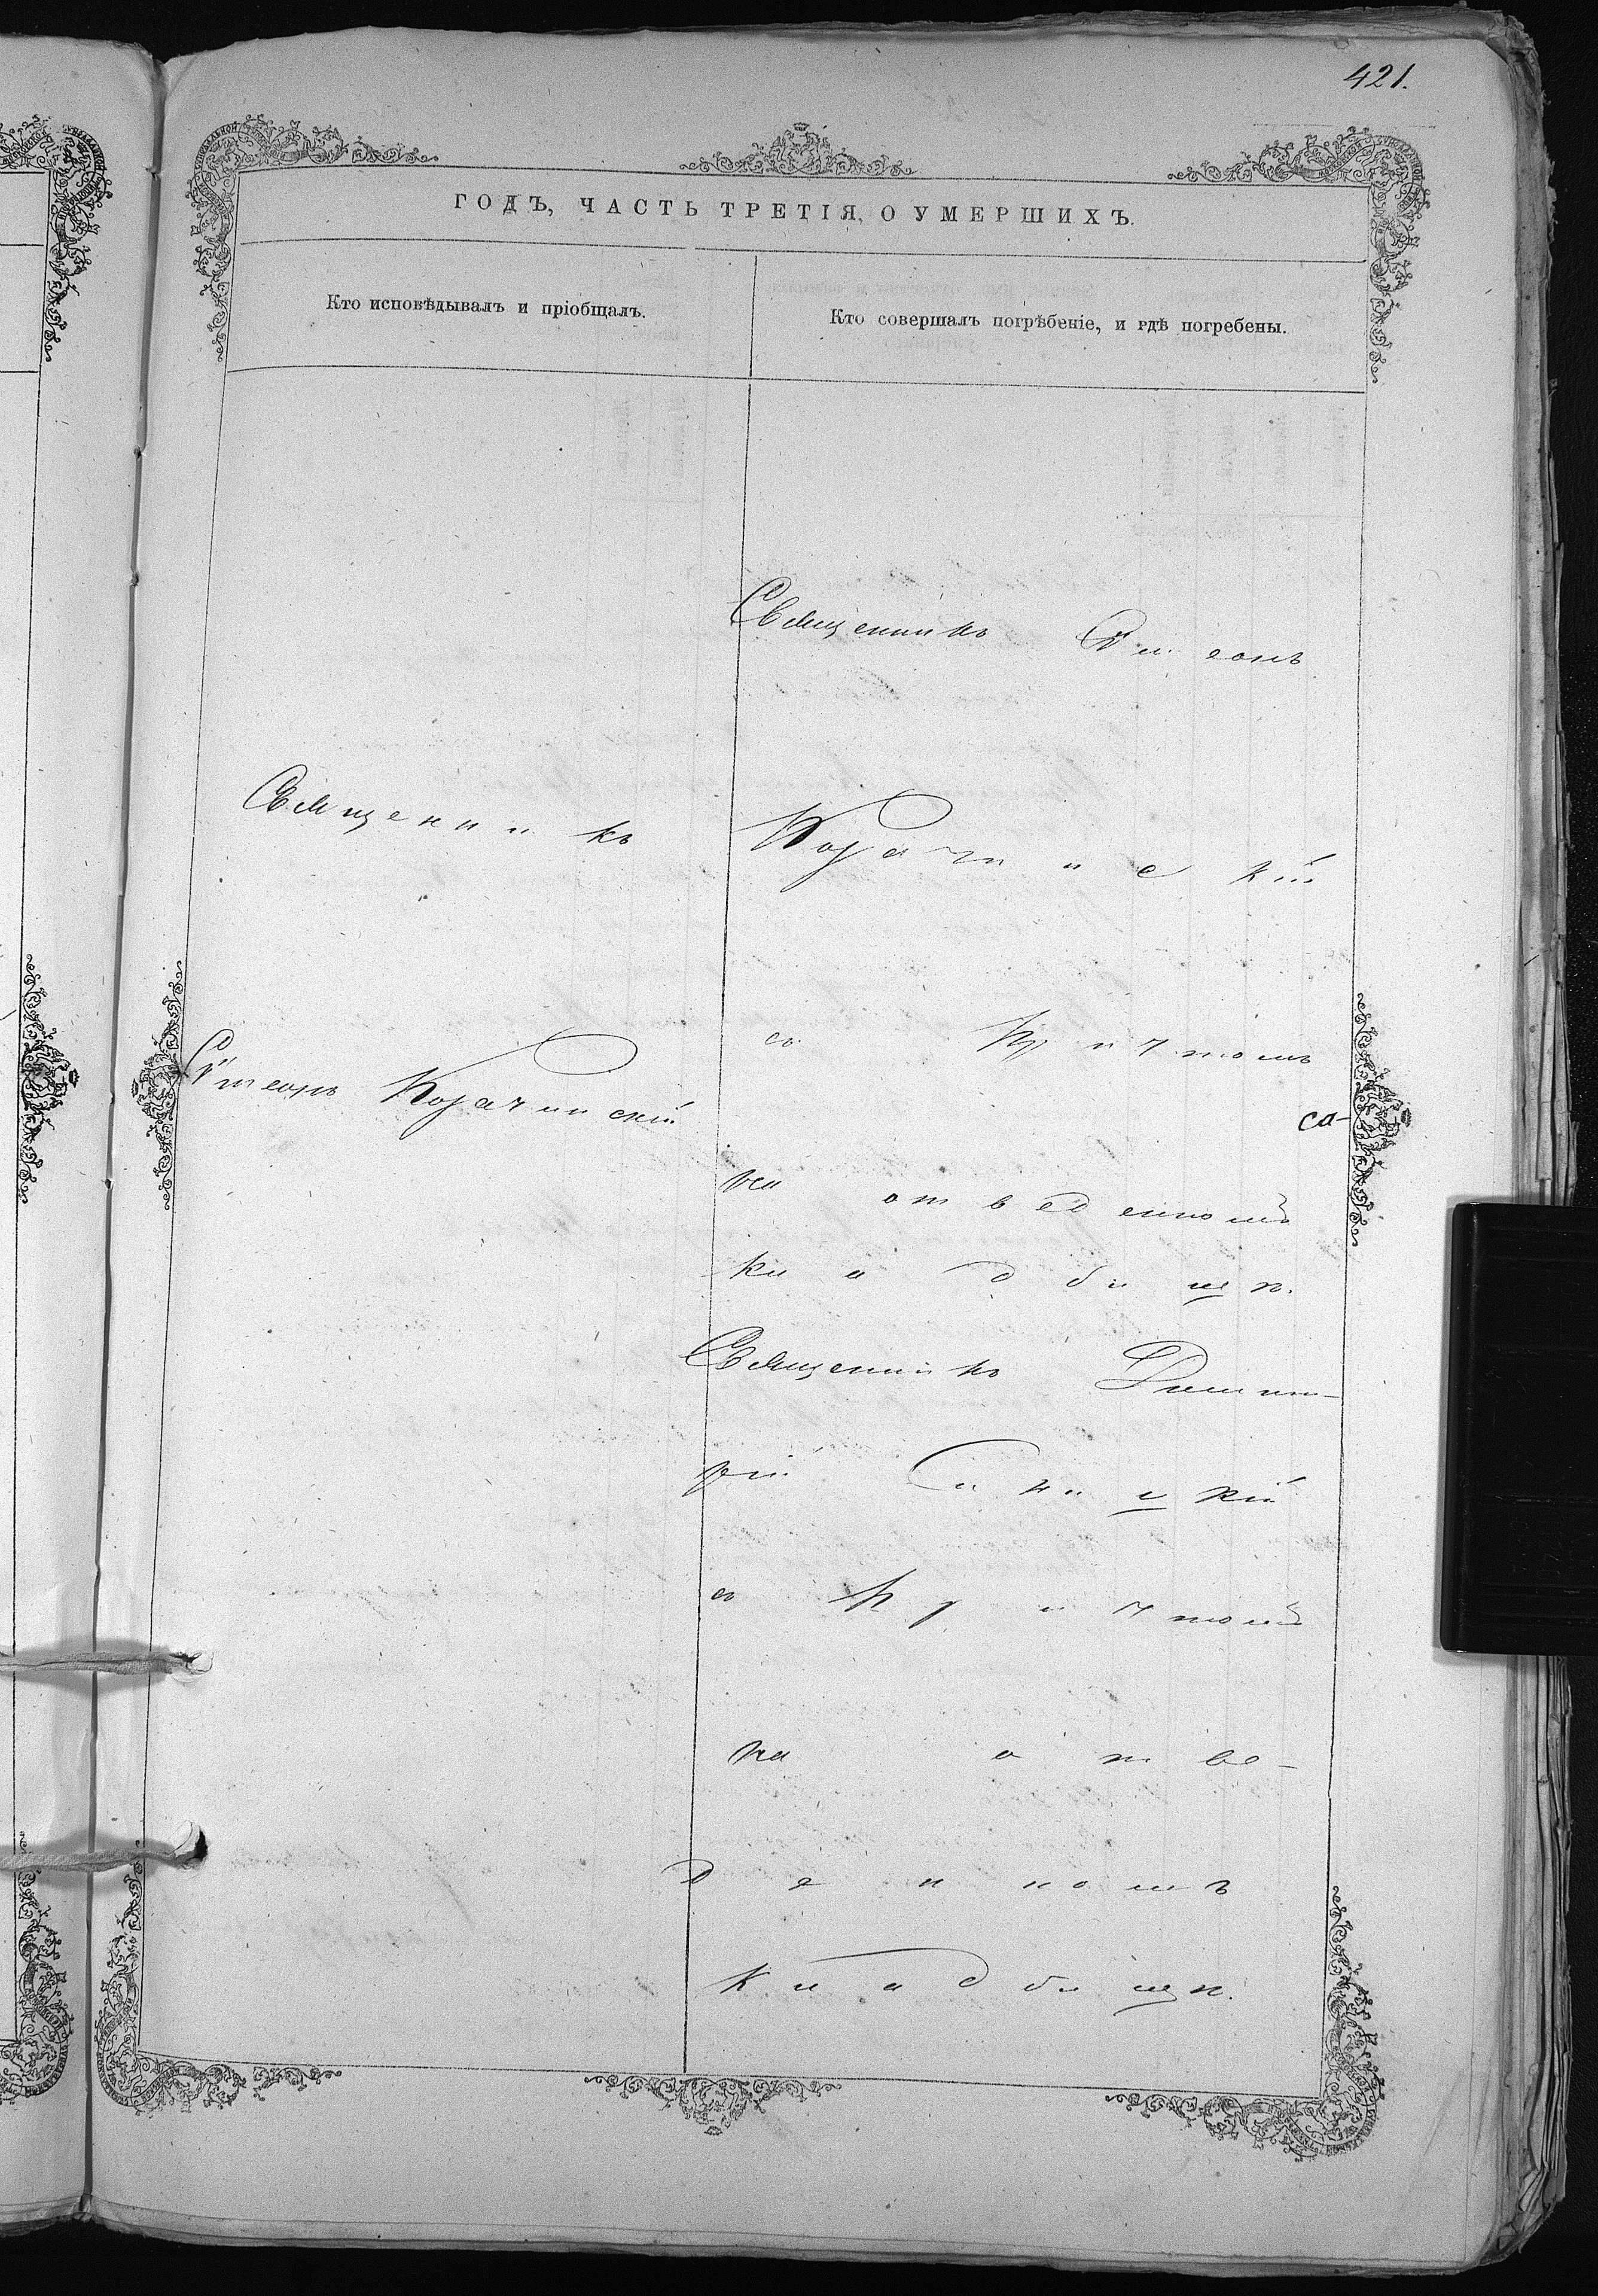 421.
ГОДЪ, ЧАСТЬ ТРЕТІЯ, О УМЕРШИХЪ.
Кто исповѣдывалъ и пріобщалъ.
Кто совершалъ погрѣбеніе, и гдѣ погребены.
Священникъ
Священникъ
Корачинскій
съ причтомъ
Корачинскій
на отведенномъ
кладбищѣ.
Священникъ Димит-
рій Синицкій
съ причтомъ
на отве-
денномъ
кладбищѣ.